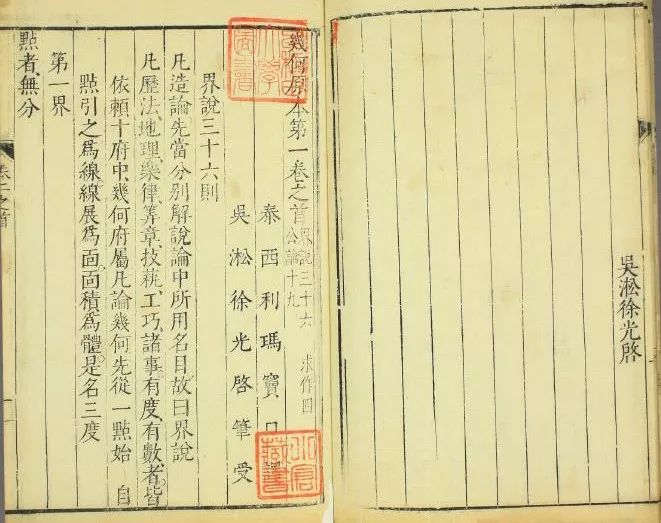 吳淞徐光啓
幾何原本第一卷之首
界說三十六
公論十九
求作四
泰西利瑪竇口譯
吳淞徐光啓筆受
界說三十六則
凡造論先當分別解說論中所用名目故曰界說
凡歷法、地理、樂律、筭章、技藝、工巧、諸事有度、有數者、皆
依賴十府中、幾何府屬凡論幾何先從一點始自
點引之爲線線展爲面、面積爲體、是名三度
第一界
點者、無分